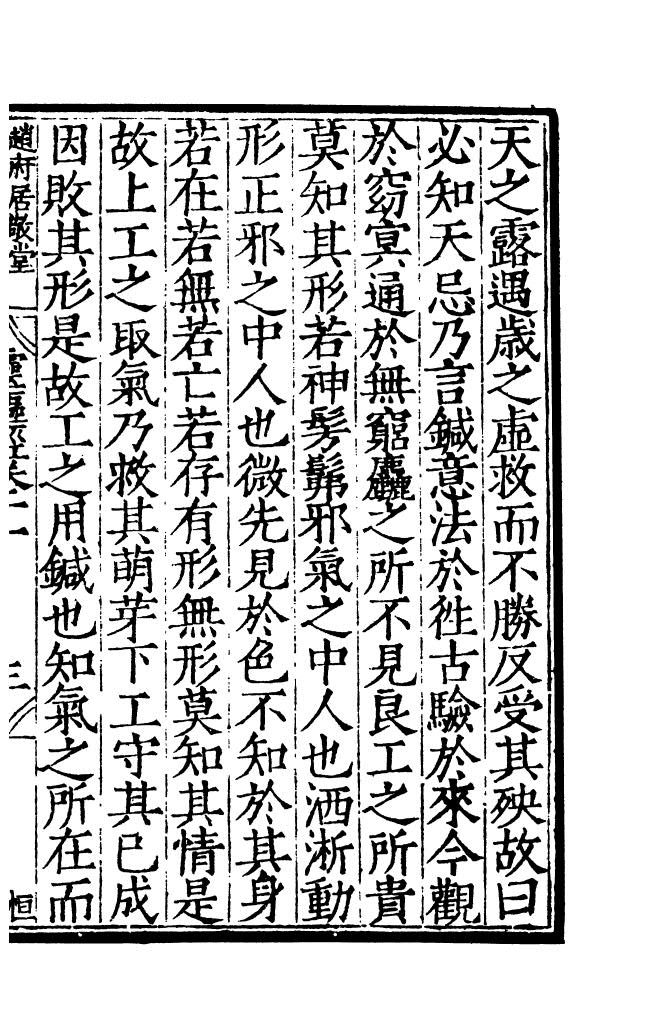 天之露遇歳之虛救而不勝反受其殃故曰
必知天忌乃言鍼意法於徃古驗於來今觀
於窈冥通於無窮麤之所不見良工之所貴
莫知其形若神髣髴邪氣之中人也洒淅動
形正邪之中人也微先見於色不知於其身
若在若無若亡若存有形無形莫知其情是
故上工之取氣乃救其萌芽下工守其已成
因敗其形是故工之用鍼也知氣之所在而
趙府居敬堂
靈樞經卷一
三
恒